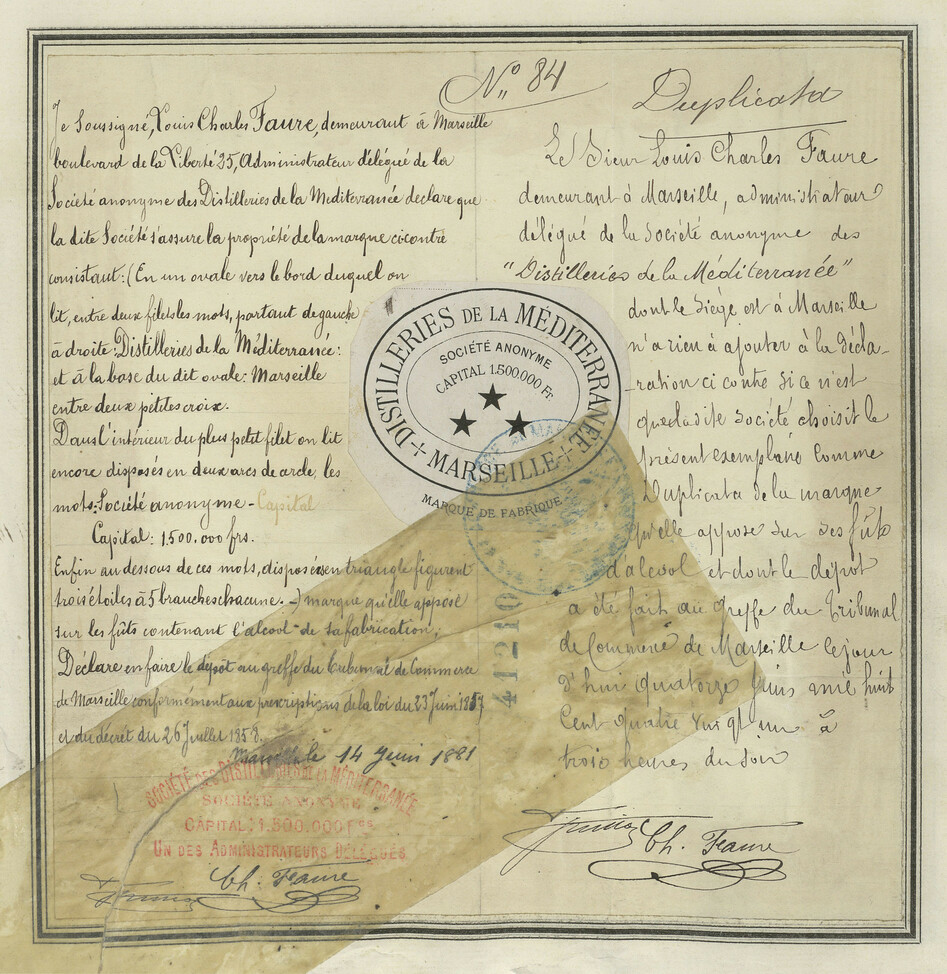 N° 84
Duplicata
Je Soussigné, Louis Charles Faure, demeurant à Marseille
boulevard de la Liberté 25, Administrateur délégué de la
Société anonyme des Distilleries de la Mediterranée declare que
la dite Société s'assure la propriété de la marque ci-contre
consistant: (En un ovale vers le bord duquel on
lit, entre deux filets les mots, partant de gauche
à droite: Distilleries de la Méditerranée:
et à la base du dit ovale: Marseille
entre deux petites croix.
Dans l'intérieur du plus petit filet on lit
encore disposés en deux arcs de cercle, les
mots: Société anonyme - Capital
Capital: 1.500.000 frs.
Enfin au dessous de ces mots, disposées en triangle figurent
trois étoiles à 5 branches chacune. -) marque qu'elle appose
sur les fûts contenant l'alcool de sa fabrication;
Déclare en faire le dépot au greffe du Tribunal de Commerce
de Marseille conformément aux prescriptions de la loi du 23 Juin 1857
et du décret du 26 Juillet 1858.
Marseille le 14 Juin 1881
SOCIÉTÉ DES DISTILLERIES DE LA MÉDITERRANÉE
SOCIÉTÉ ANONYME
CAPITAL: 1.500.000 FRS
UN DES ADMINISTRATEURS DÉLÉGUÉS
Ch. Faure
DISTILLERIES DE LA MÉDITERRANÉE
SOCIÉTÉ ANONYME
CAPITAL 1.500.000 Fr
MARSEILLE
MARQUE DE FABRIQUE
41210
Le Sieur Louis Charles Faure
demeurant à Marseille, administrateur
délégué de la Société anonyme des
"Distilleries de la Méditerranée"
dont le Siège est à Marseille
n'a rien à ajouter à la décla-
ration ci contre si ce n'est
que ladite Société choisit le
présent exemplaire comme
Duplicata de la marque
qu'elle appose sur ses fûts
d'alcool et dont le dépot
a été fait au greffe du Tribunal
de Commerce de Marseille le jour
d'hui quatorze Juin mil huit
Cent quatre vingt un à
trois heures du soir
Ch. Faure